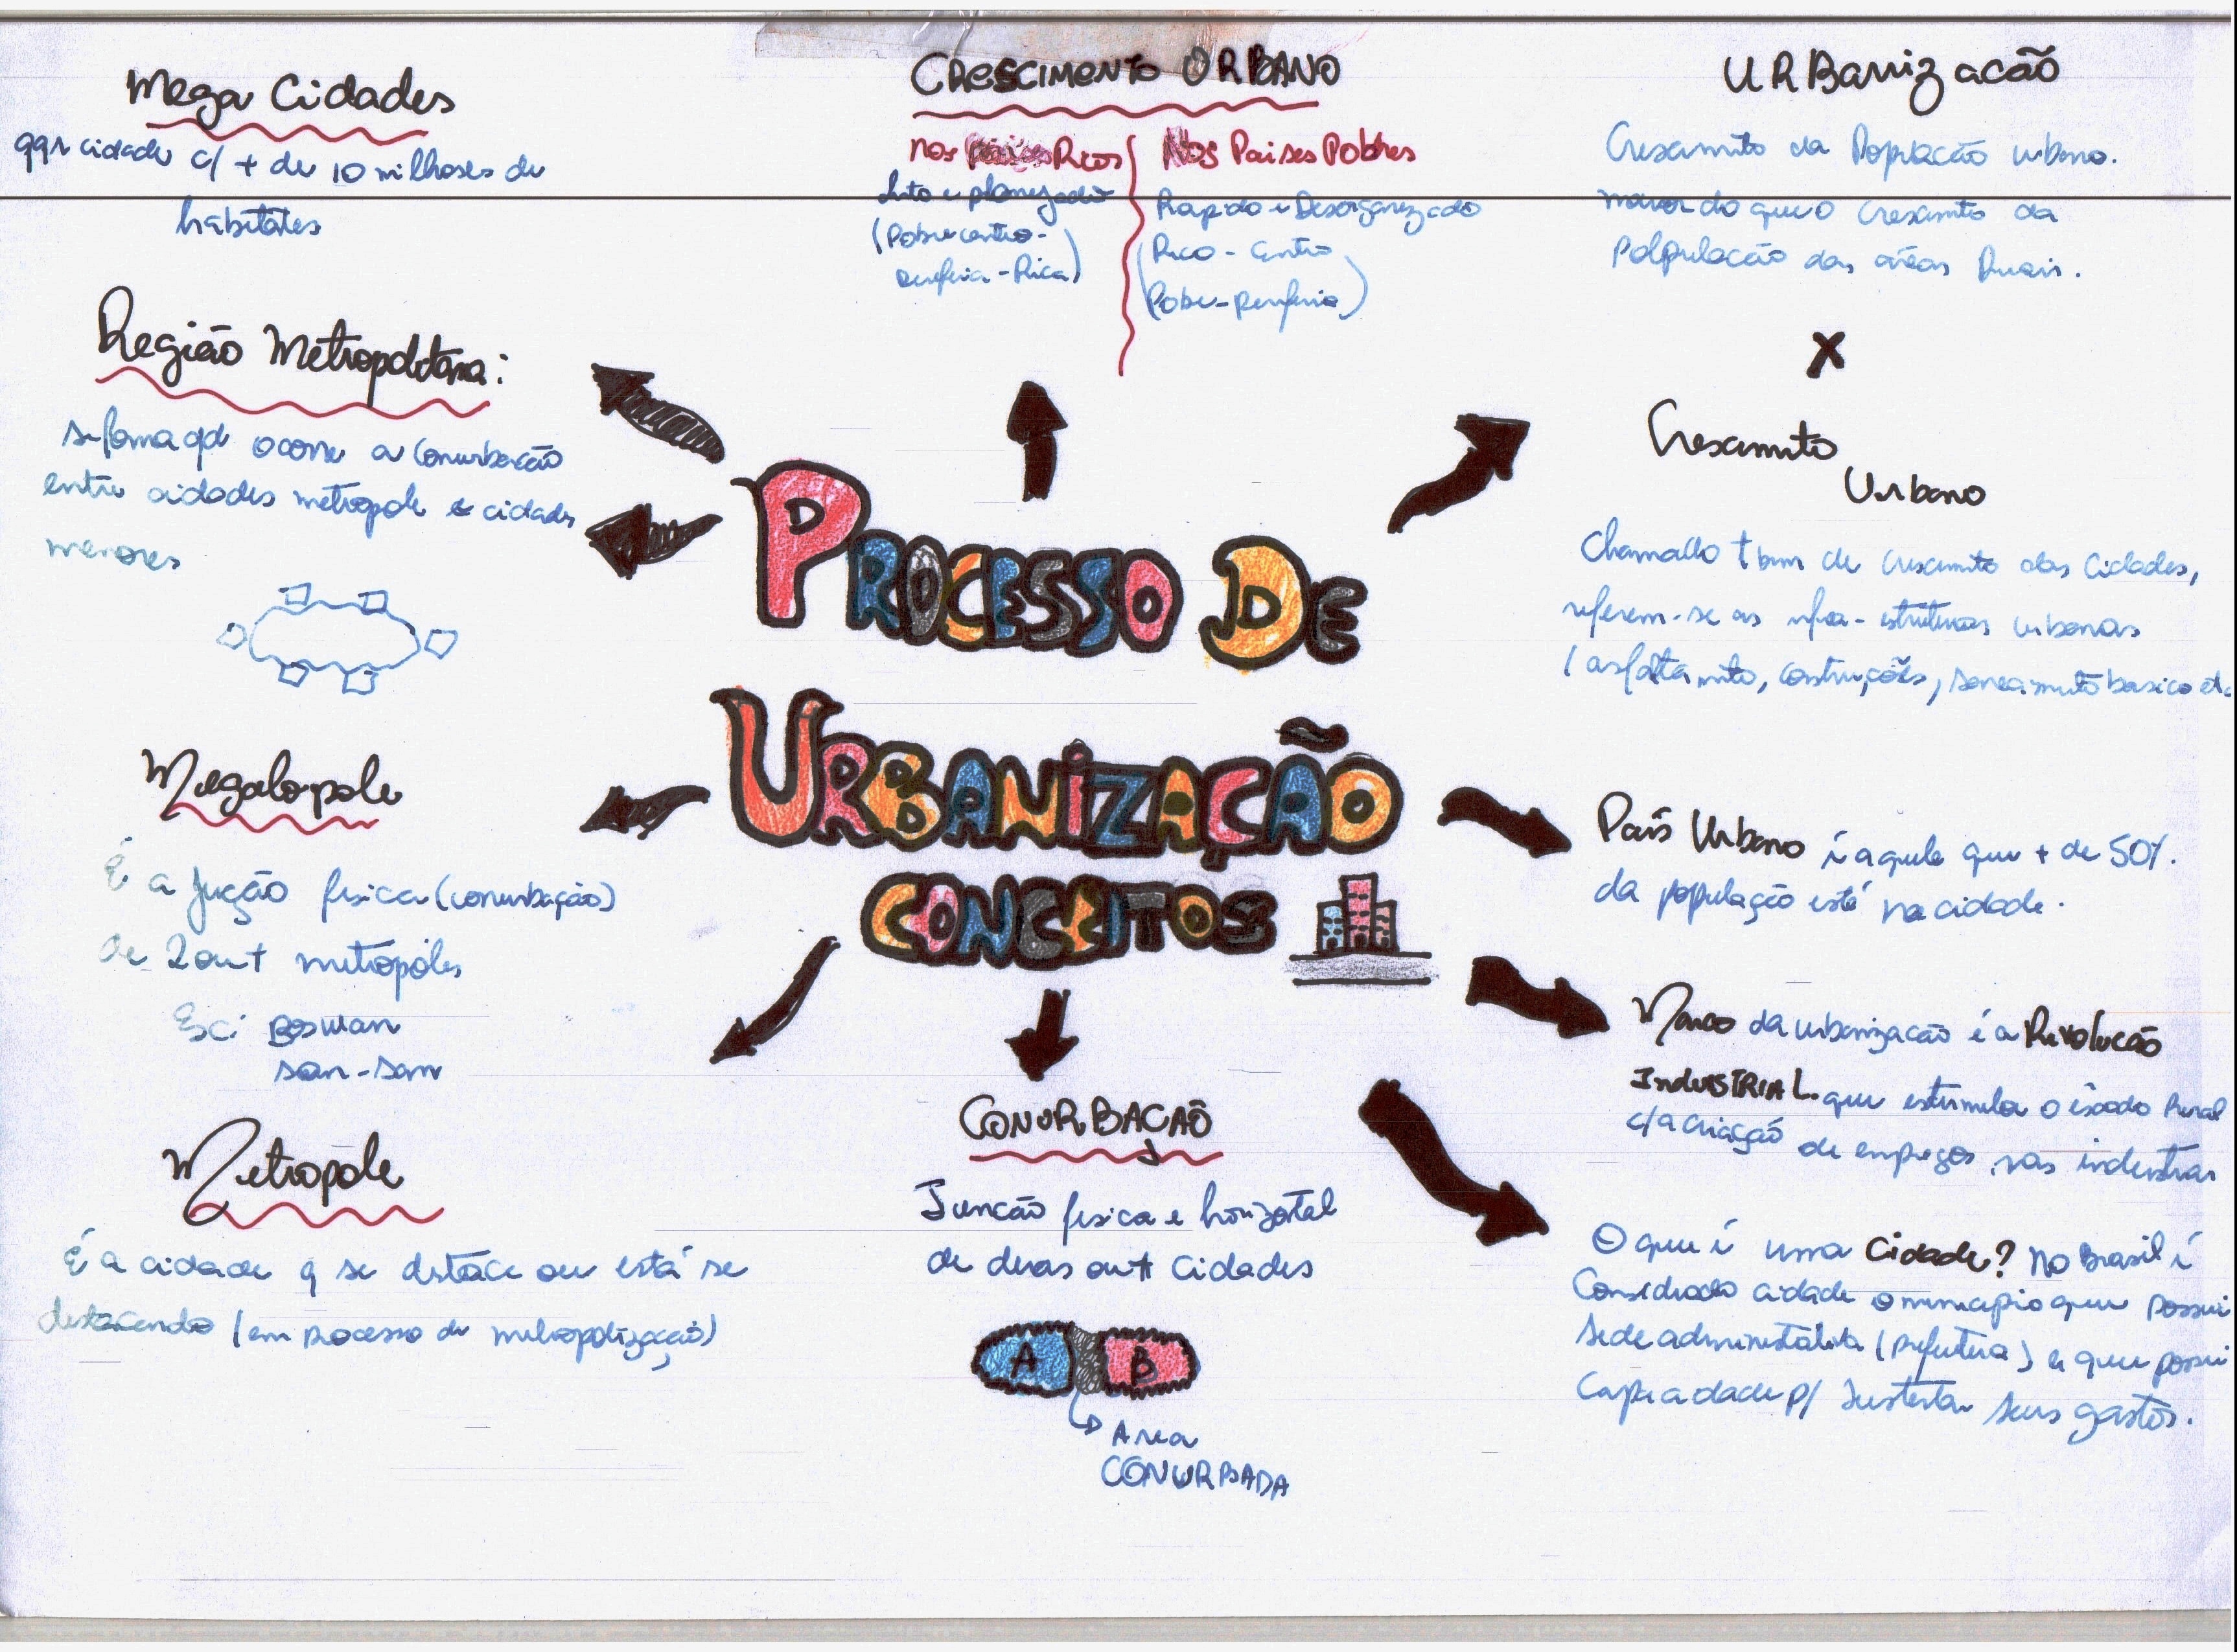 Mega Cidades
qqr cidade c/ + de 10 milhoses de
habitátes
Região Metropolitana:
se forma qd ocorre a conurbação
entre cidades metropole e cidades
menores
Megalopole
É a jução fisica (conurbação)
de 2 ou + metropóles
Ex: Boswan
san-san
Metropole
É a cidade q se distace ou está se
destacendo (em processo de metropolização)
CRESCIMENTO URBANO
nos Paises Ricos
lento e planejado
(Pobre centro-
periferia - Rica)
Nos Paises Pobres
Rapido e Desorganizado
(Rico - Centro
Pobre - Periferia)
PROCESSO DE
URBANIZAÇÃO
CONCEITOS
CONURBACAÕ
Juncão fisica e horizontal
de duas ou + Cidades
A B
Area
CONURBADA
URBanizacão
Crescimento da População urbana.
maior do que o crescimto da
Polpulacão das aréas Rurais.
X
Crescimento
Urbano
Chamado tbm de crescimento das Cidades,
referem-se as infra-estruturas urbanas
(asfaltamento, construções, saneamento basico etc
País Urbano é aquele que + de 50%.
da população esté na cidade.
Marco da urbanizacão é a Revolucão
INDUSTRIAL. que estimula o êxodo Rural
c/a criação de empregos nas industrias
O que é uma Cidade? No Brasil é
Considrada cidade o municipio que possui
sede administrativa (prefeitura) e que possui
Capacidade p/ sustentar seus gastos.